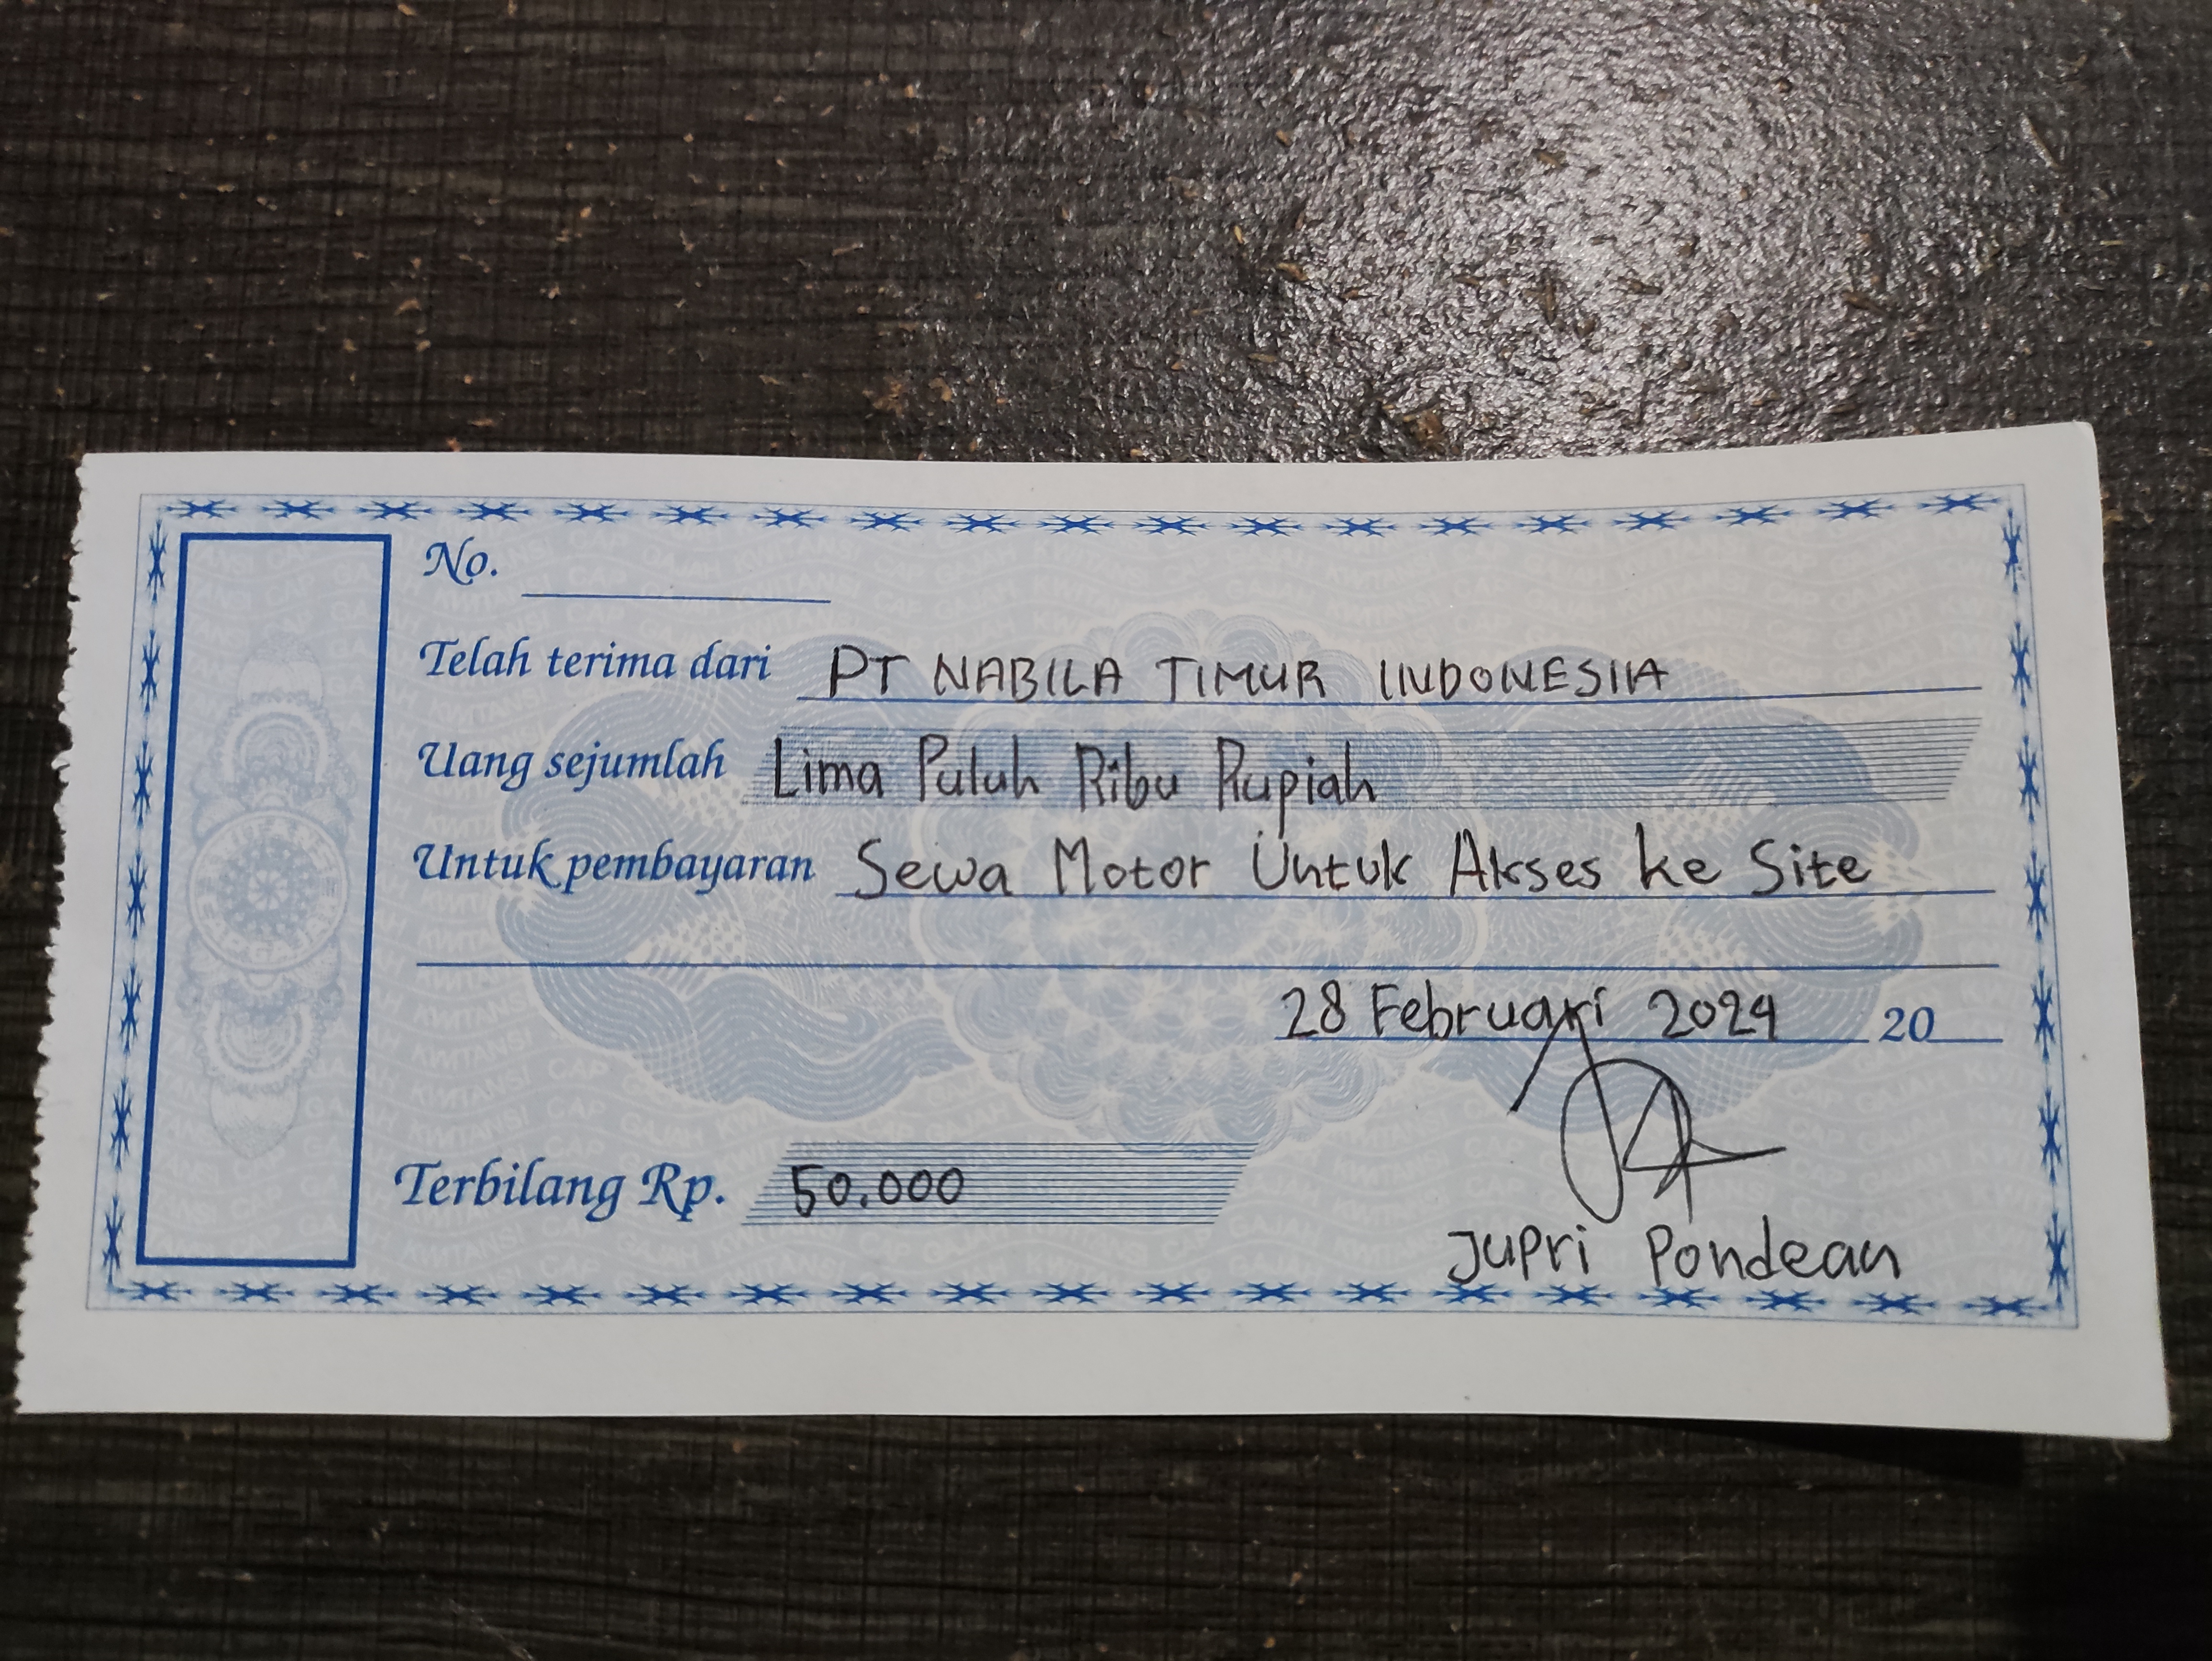 No.
Telah terima dari PT NABILA TIMUR INDONESIA
Uang sejumlah Lima Puluh Ribu Rupiah
Untuk pembayaran Sewa Motor Untuk Akses ke Site
28 Februari 2024 20
Terbilang Rp. 50.000
Jupri Pondean